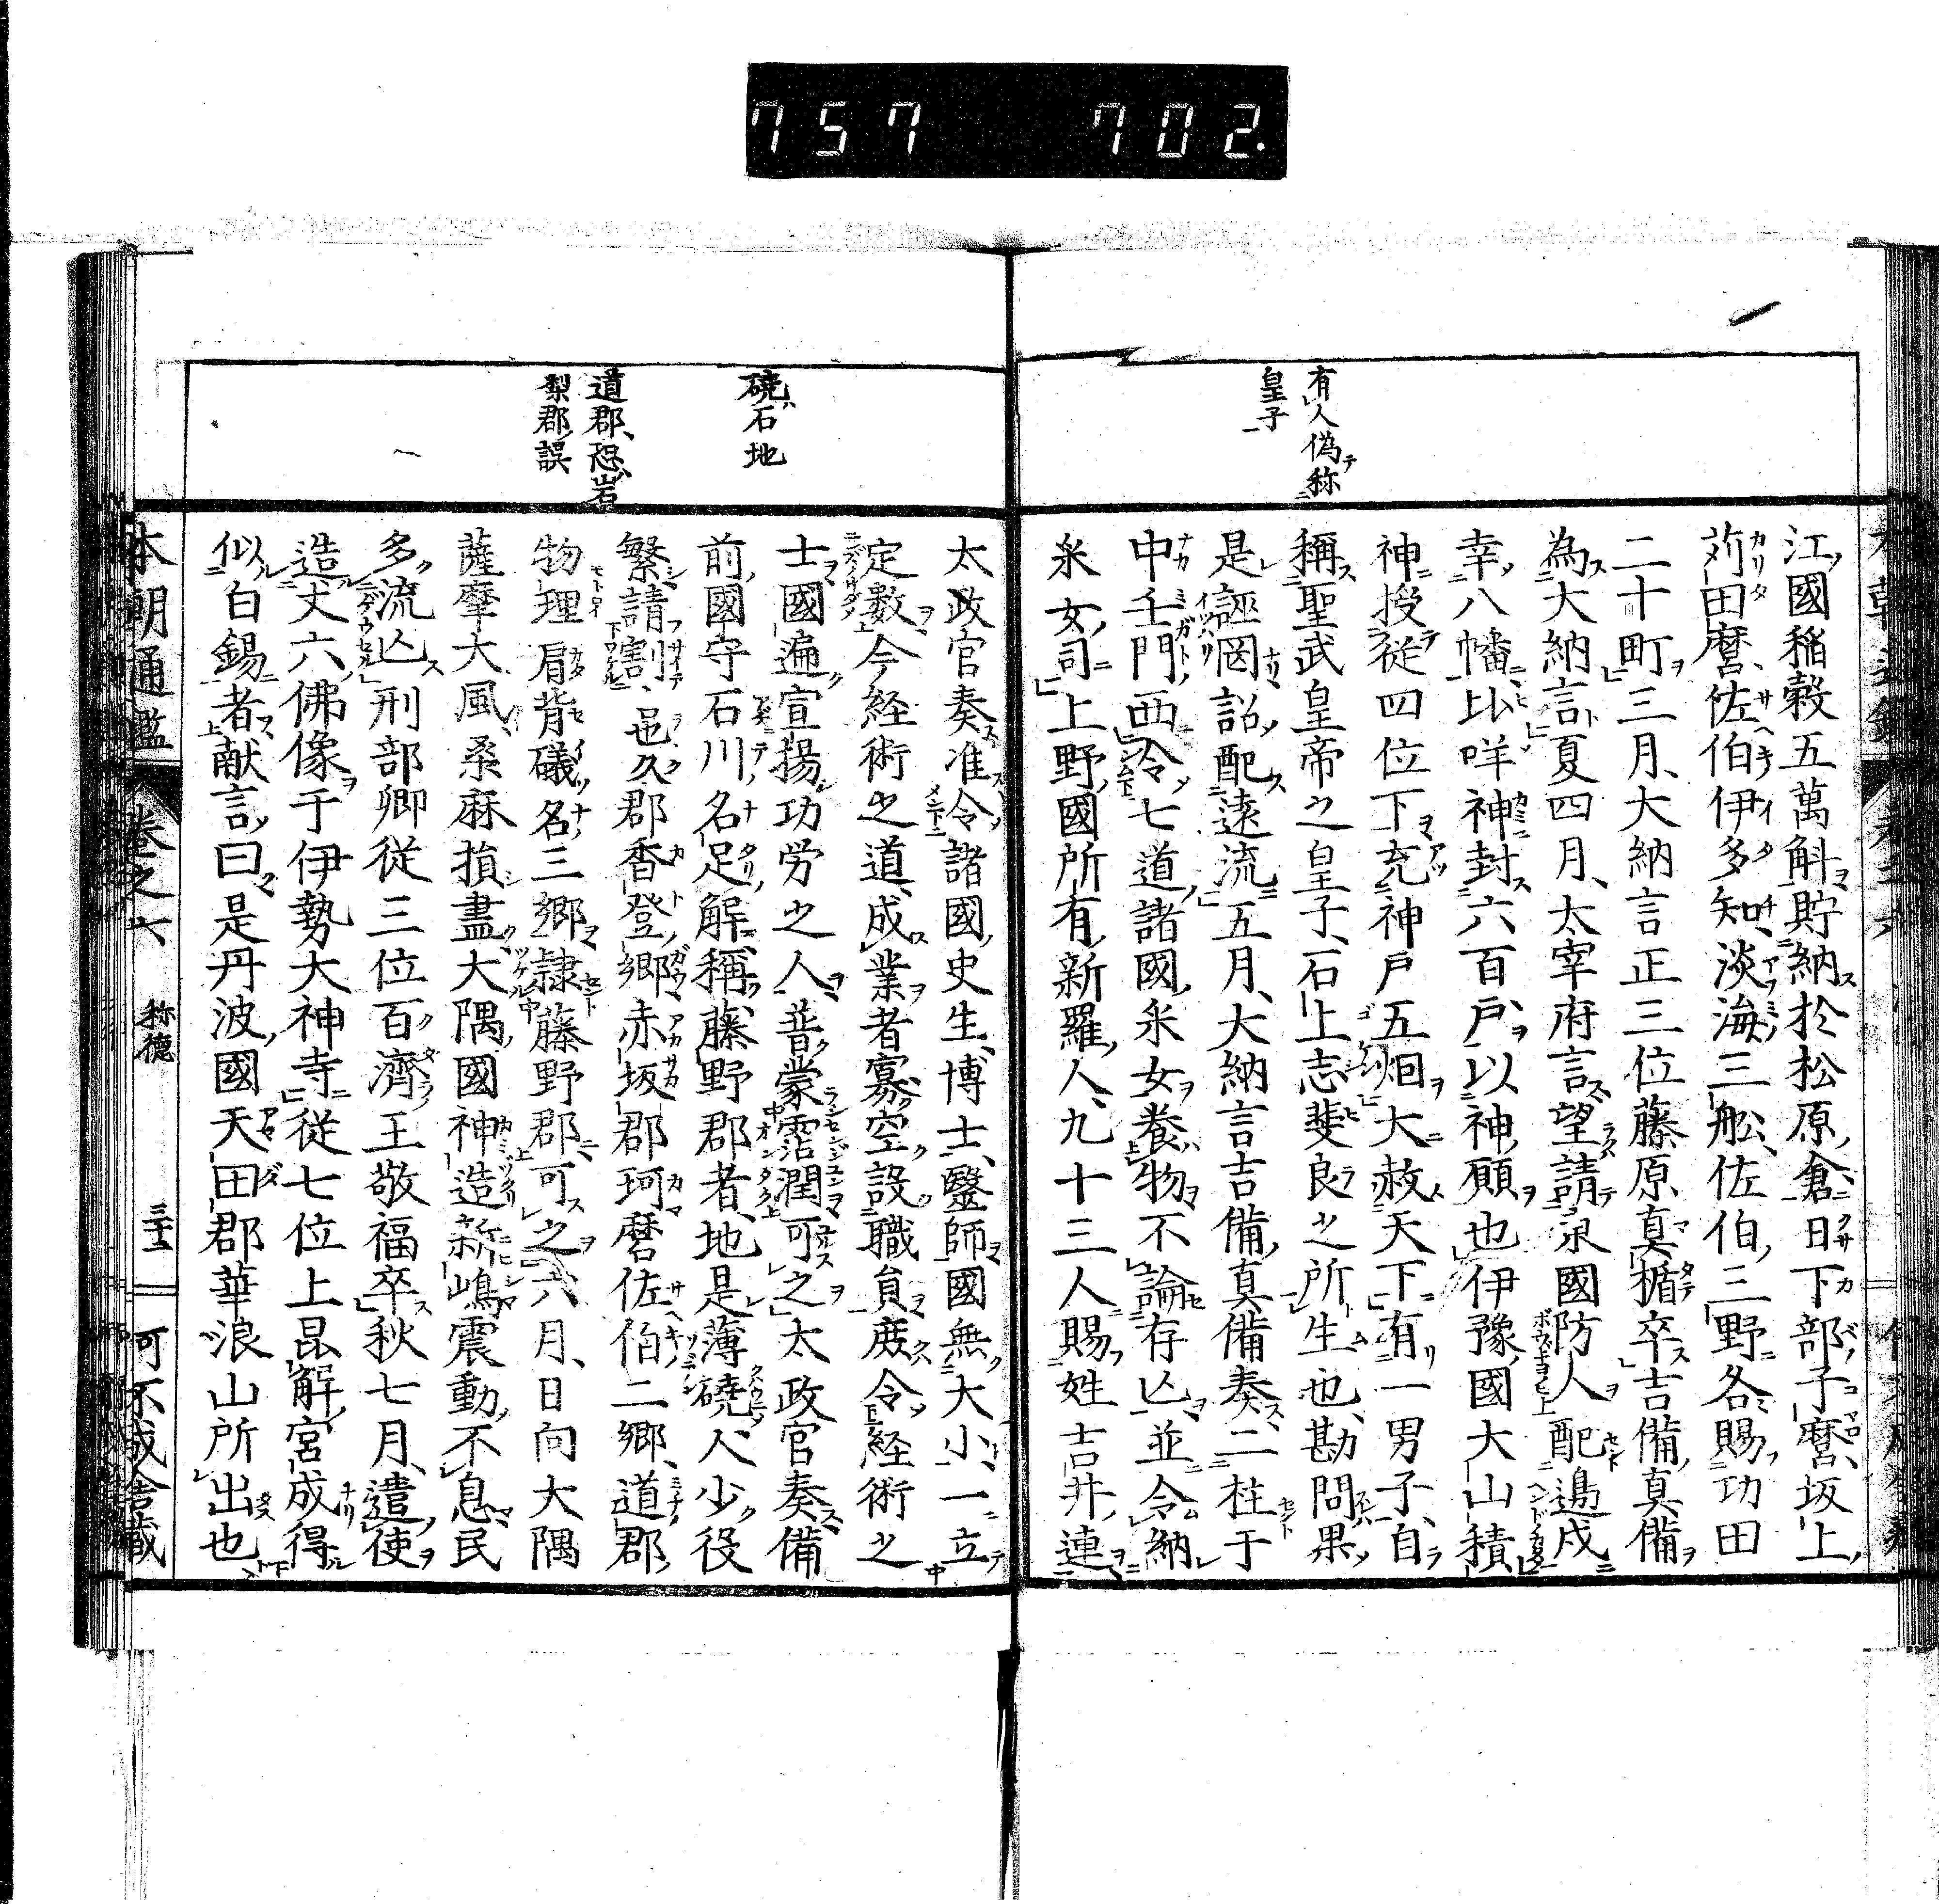 757 702.
有人偽称
皇子
江國稲穀五萬斛貯納於松原倉日下部子麿坂上
苅田麿佐伯伊多知淡海三舩佐伯三野各賜功田
二十町三月大納言正三位藤原真楯卒吉備真備
為大納言夏四月太宰府言望請東國防人配邊戍
幸八幡比咩神封六百戸以神願也伊豫國大山積
神授從四位下充神戸五烟大赦天下有一男子自
稱聖武皇帝之皇子石上志斐良之所生也勘問果
是誣罔詔配遠流五月大納言吉備真備奏二柱于
中壬門西令七道諸國釆女養物不論存亾並令納
釆女司上野國所有新羅人九十三人賜姓吉井連
磽石地
道郡恐岩
梨郡誤
太政官奏准令諸國史生博士醫師國無大小一立
定數今経術之道成業者寡空設職員庻令経術之
士國遍宣揚功労之人普蒙霑潤可之太政官奏備
前國守石川名足解稱藤野郡者地是薄磽人少役
繁請割邑久郡香登郷赤坂郡珂磨佐伯二郷道郡
物理肩背礒名三郷隷藤野郡可之六月日向大隅
薩摩大風桑麻損盡大隅國神造新嶋震動不息民
多流亾刑部卿從三位百濟王敬福卒秋七月遣使
造丈六佛像于伊勢大神寺從七位上昆解宮成得
似白錫者献言曰是丹波國天田郡華浪山所出也
本朝通鑑 卷之六 称德 三十二 可不成舎蔵